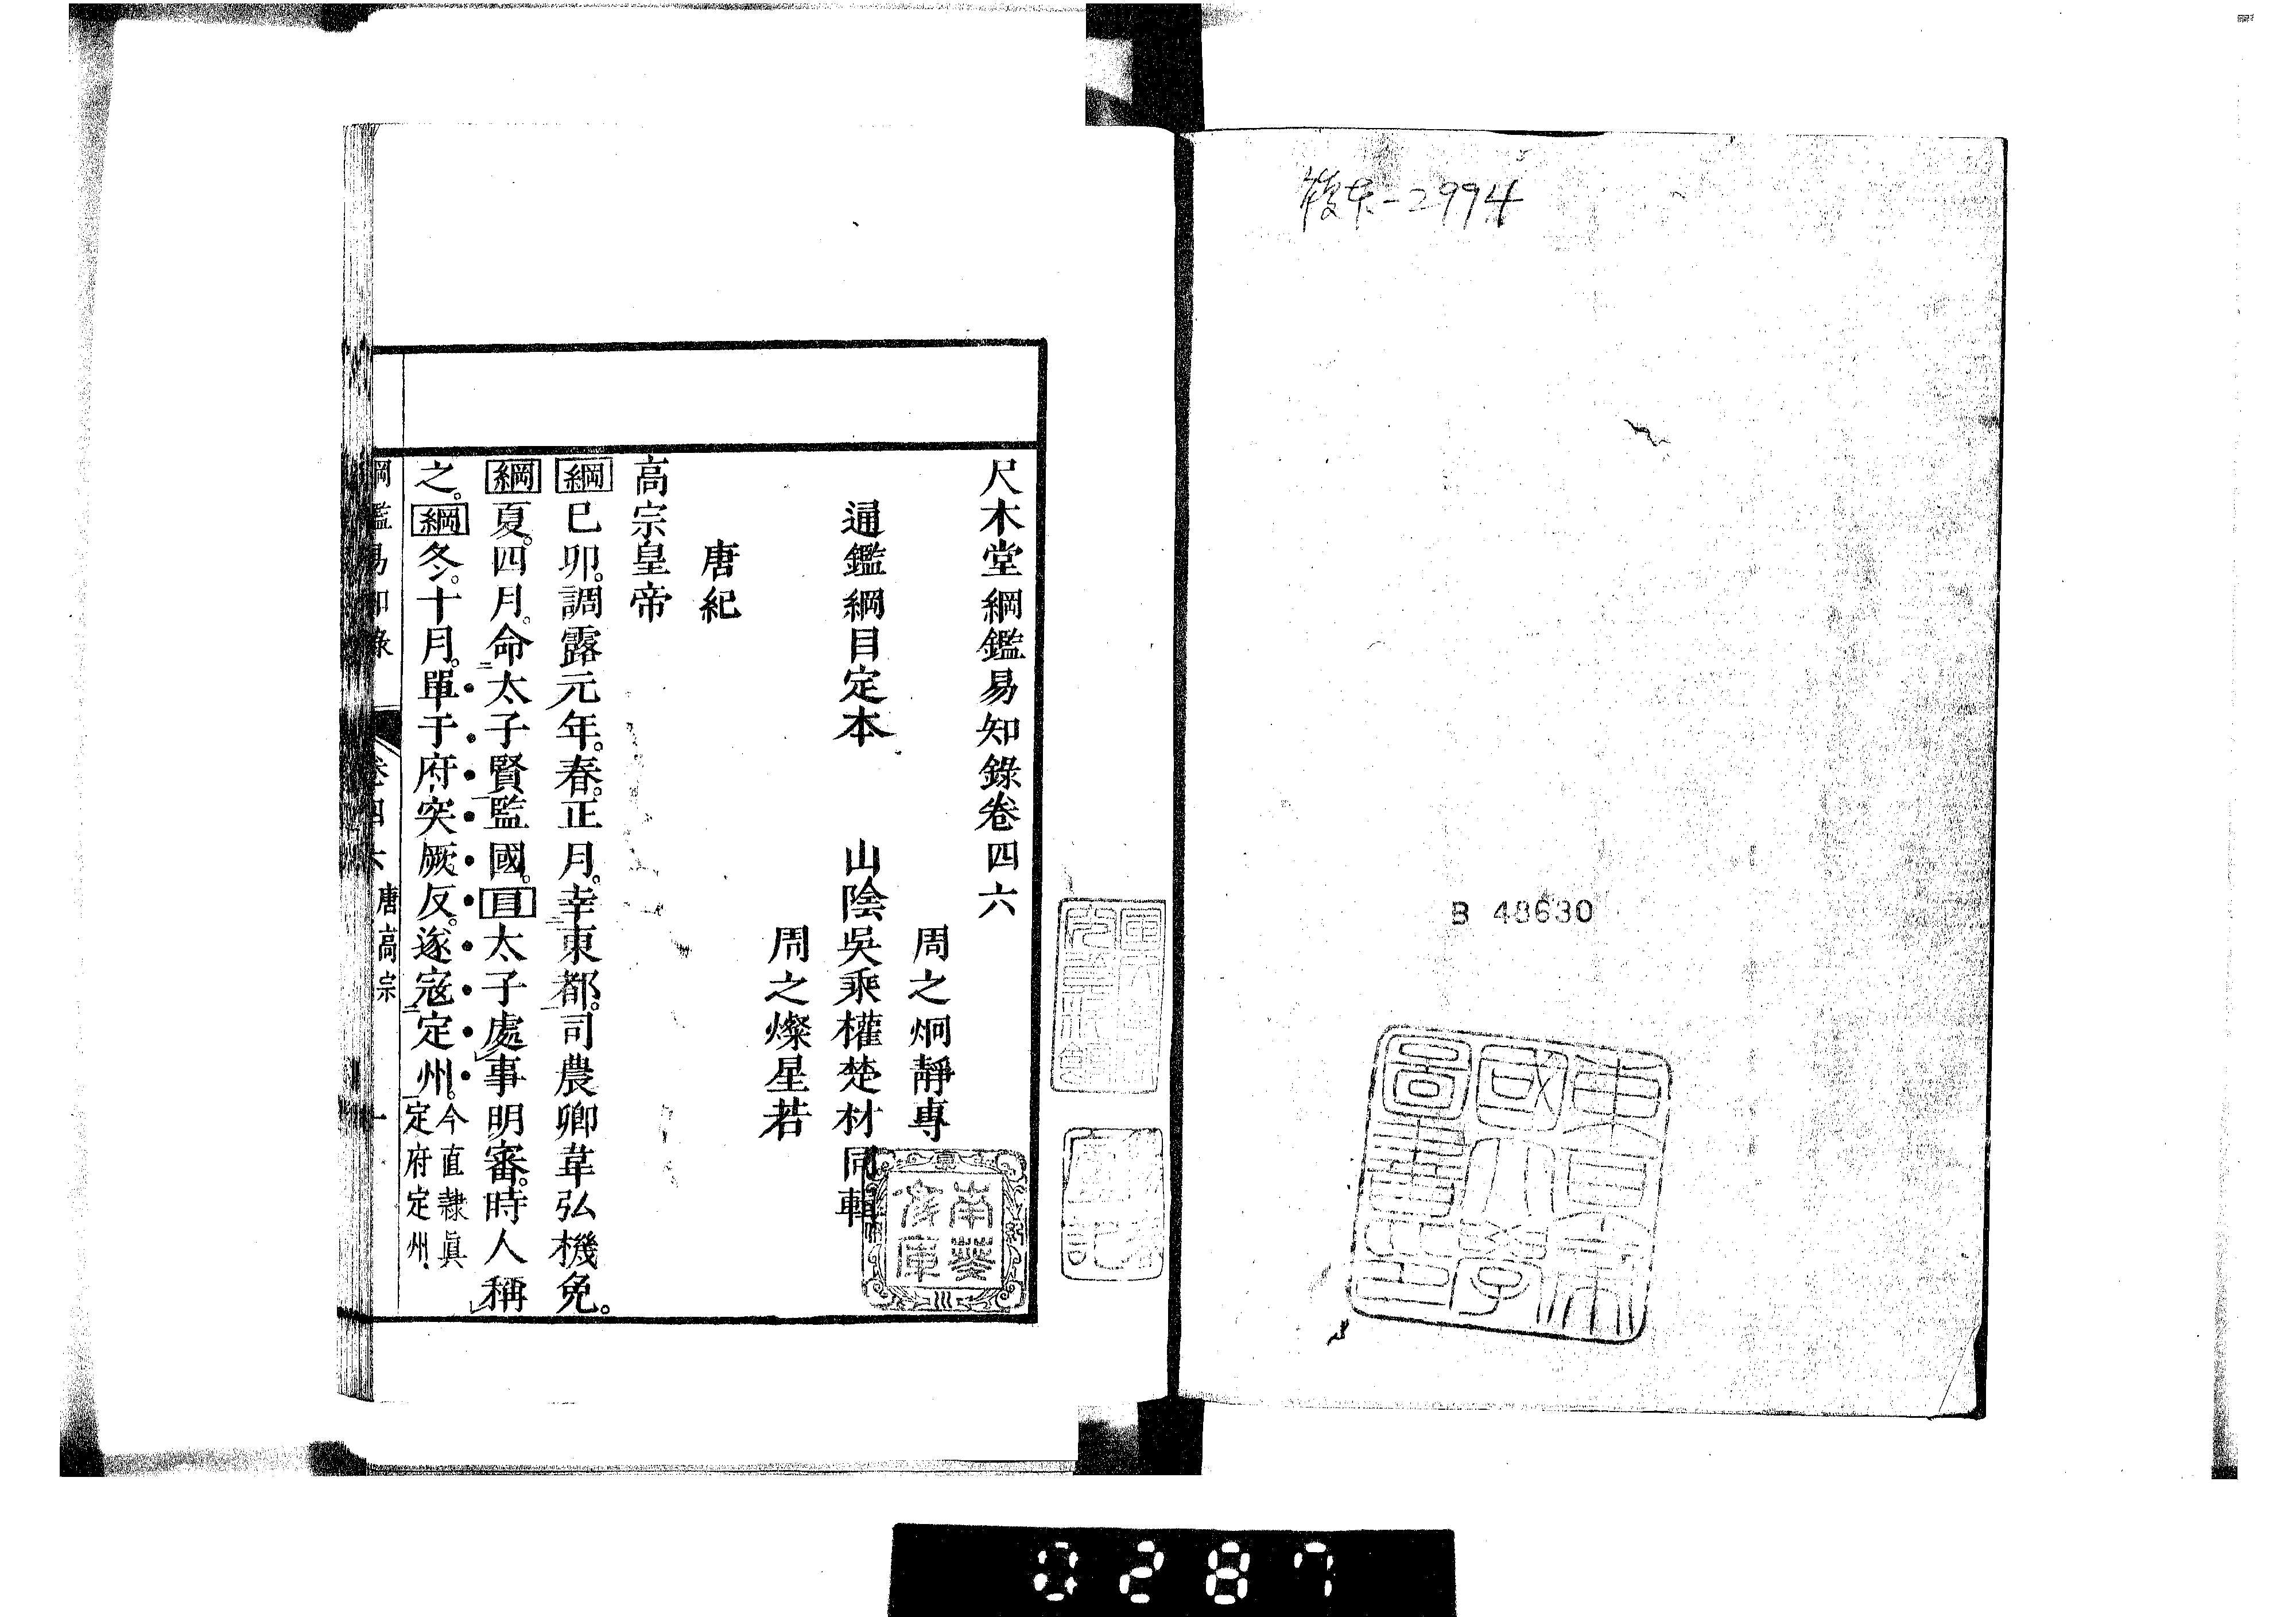 復东-2994
B 48630
東京帝
國大學
圖書印
尺木堂綱鑑易知錄卷四六
周之炯靜專
通鑑綱目定本 山陰吳乘權楚材同輯
周之燦星若
唐紀
高宗皇帝
綱己卯。調露元年。春。正月。幸東都。司農卿韋弘機免。
綱夏。四月。命太子賢監國。目太子處事明審。時人稱
之。綱冬。十月。單于府突厥反。遂寇定州。今直隸眞
定府定州.
綱鑑易知錄 卷四六 唐高宗 一
南葵
文庫
0287